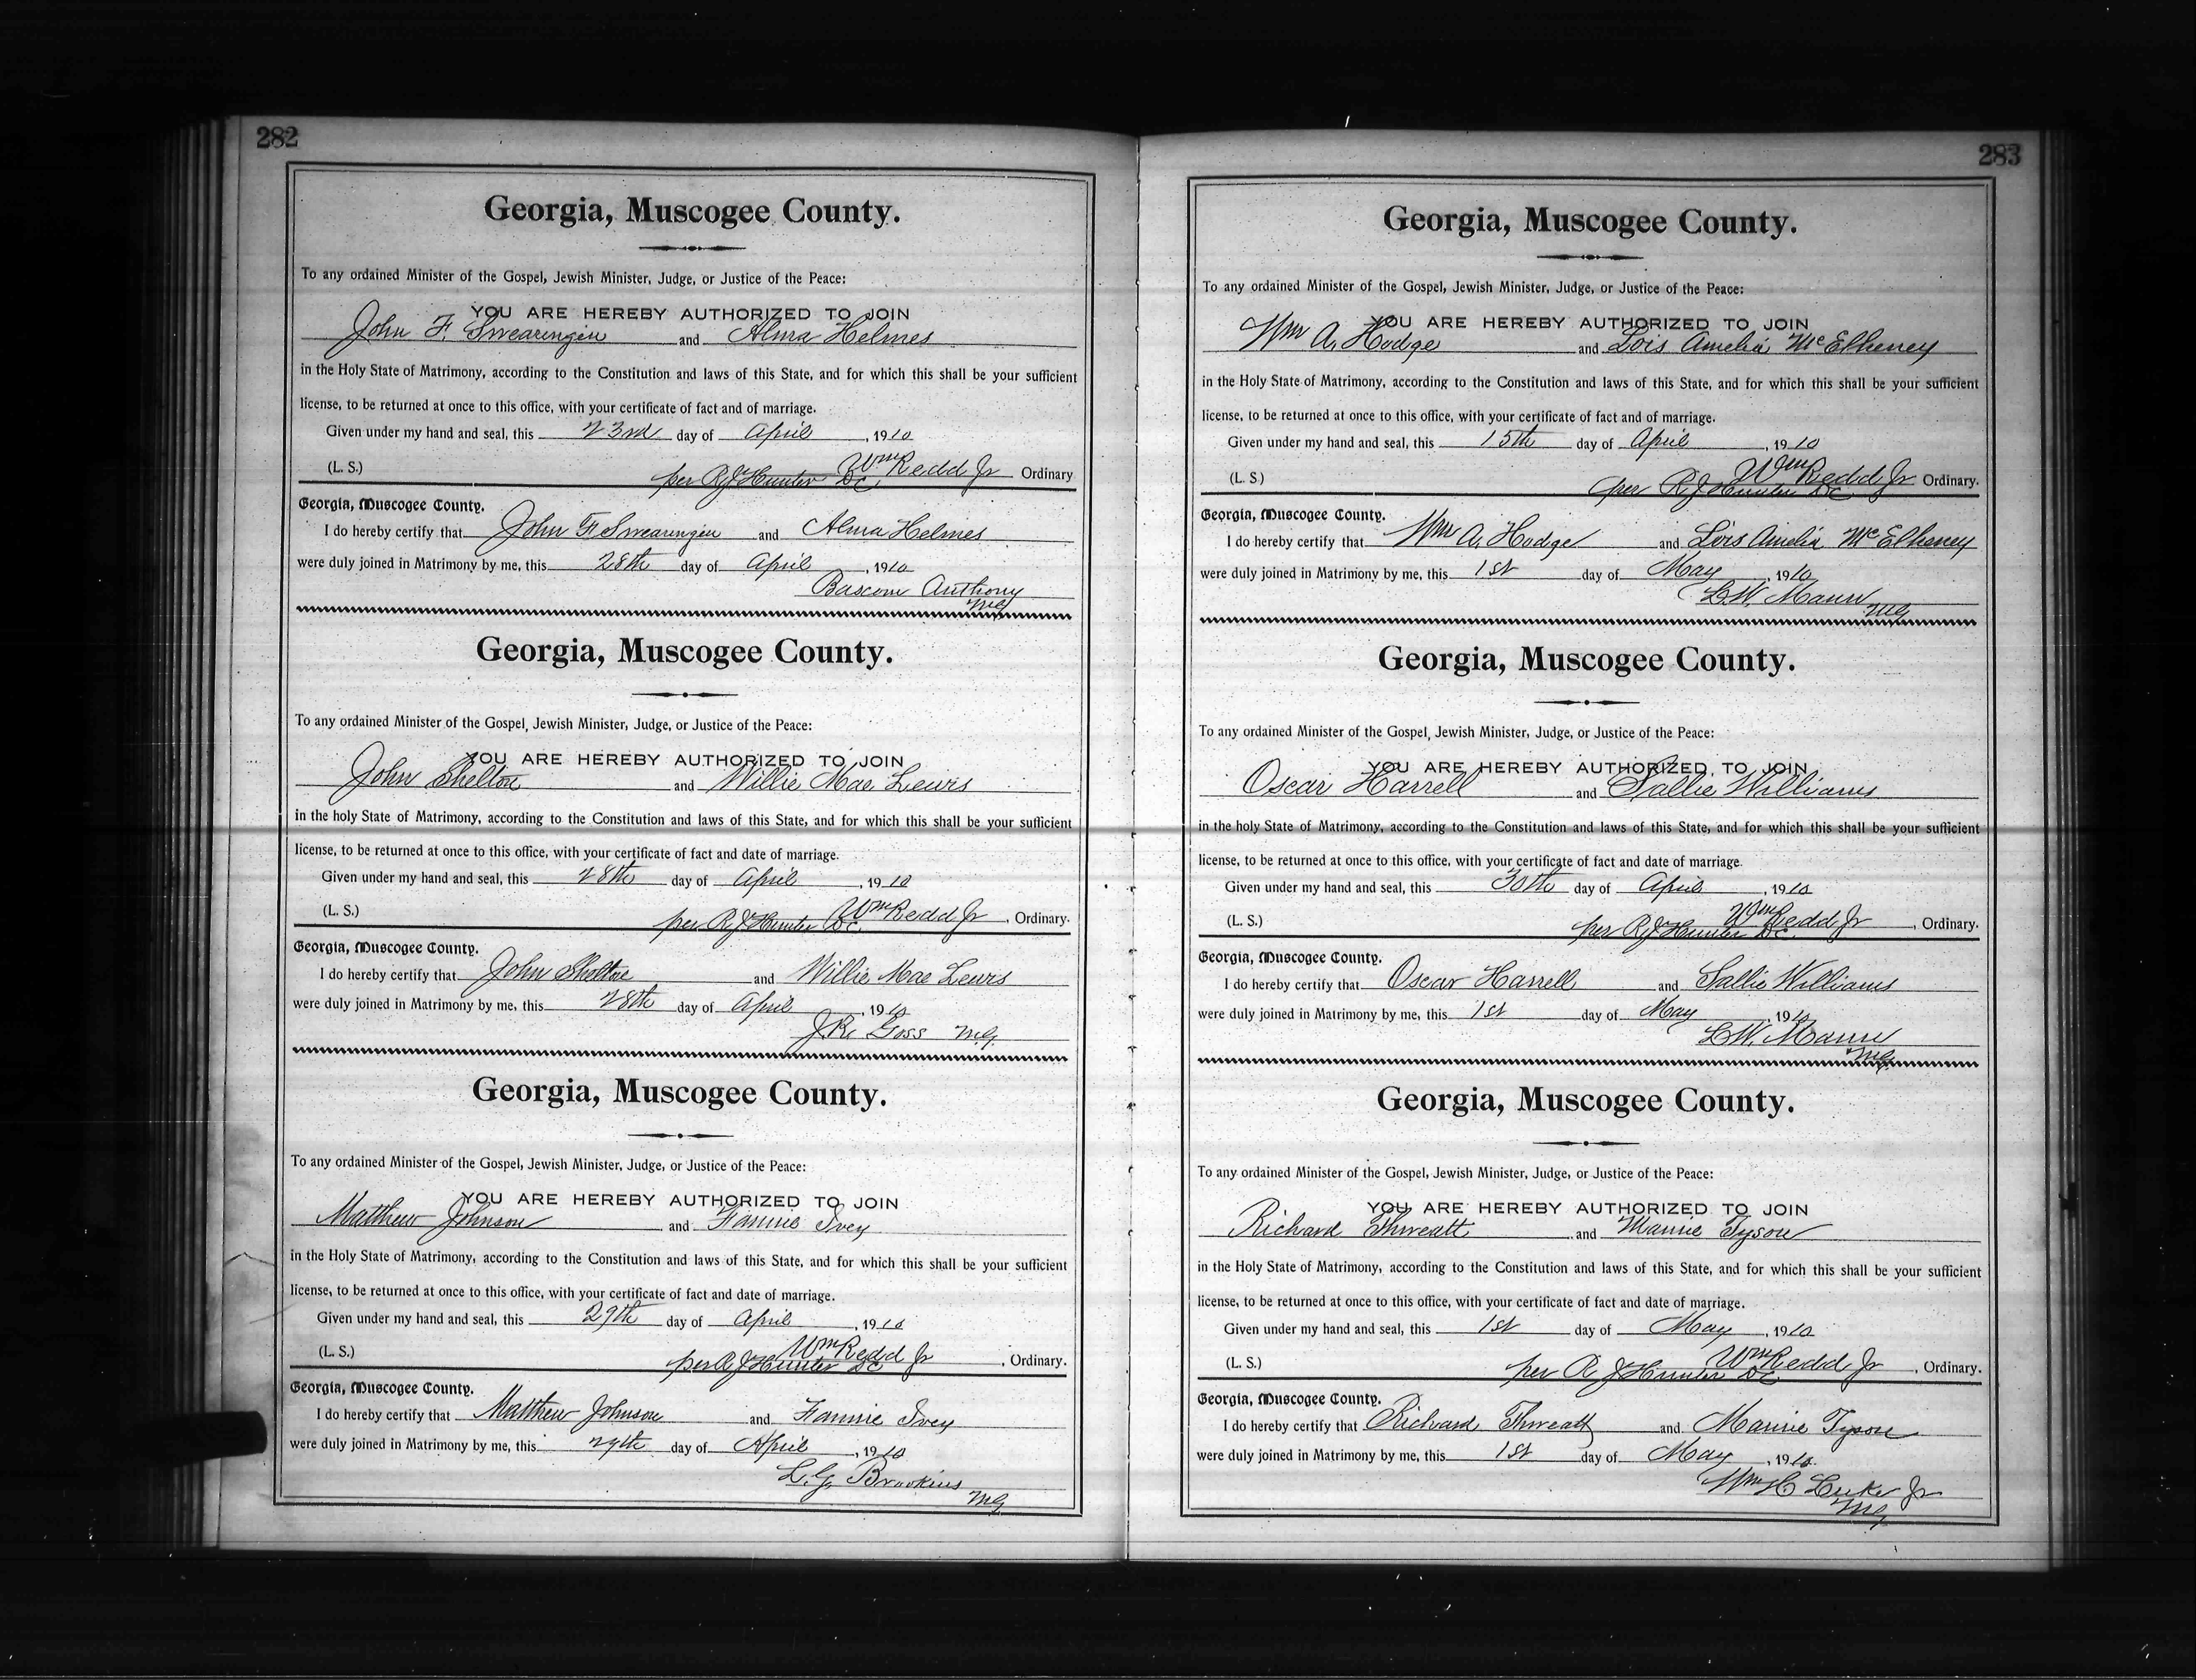 282
Georgia, Muscogee County.
To any ordained Minister of the Gospel, Jewish Minister, Judge, or Justice of the Peace:
YOU ARE HEREBY AUTHORIZED TO JOIN
John F. Swearingin and Alma Helmes
in the Holy State of Matrimony, according to the Constitution and laws of this State, and for which this shall be your sufficient
license, to be returned at once to this office, with your certificate of fact and of marriage.
Given under my hand and seal, this 23rd day of April, 1910
(L. S.) Wm Redd Jr Ordinary
per R J Hunter D.C.
Georgia, Muscogee County.
I do hereby certify that John F Swearingin and Alma Helmes
were duly joined in Matrimony by me, this 28th day of April, 1910
Bascom Anthony
MG
Georgia, Muscogee County.
To any ordained Minister of the Gospel, Jewish Minister, Judge, or Justice of the Peace:
YOU ARE HEREBY AUTHORIZED TO JOIN
John Shelton and Willie Mae Lewis
in the holy State of Matrimony, according to the Constitution and laws of this State, and for which this shall be your sufficient
license, to be returned at once to this office, with your certificate of fact and date of marriage.
Given under my hand and seal, this 28th day of April, 1910
(L. S.) Wm Redd Jr, Ordinary.
per R J Hunter D.C.
Georgia, Muscogee County.
I do hereby certify that John Shelton and Willie Mae Lewis
were duly joined in Matrimony by me, this 28th day of April, 1910
J.R. Goss M.G.
Georgia, Muscogee County.
To any ordained Minister of the Gospel, Jewish Minister, Judge, or Justice of the Peace:
YOU ARE HEREBY AUTHORIZED TO JOIN
Matthew Johnson and Fannie Ivey
in the Holy State of Matrimony, according to the Constitution and laws of this State, and for which this shall be your sufficient
license, to be returned at once to this office, with your certificate of fact and date of marriage.
Given under my hand and seal, this 29th day of April, 1910
(L. S.) Wm Redd Jr, Ordinary.
per R J Hunter DC
Georgia, Muscogee County.
I do hereby certify that Matthew Johnson and Fannie Ivey
were duly joined in Matrimony by me, this 29th day of April, 1910
L.G. Brookins
MG
283
Georgia, Muscogee County.
To any ordained Minister of the Gospel, Jewish Minister, Judge, or Justice of the Peace:
YOU ARE HEREBY AUTHORIZED TO JOIN
Wm A. Hodge and Lois Amelia McElheney
in the Holy State of Matrimony, according to the Constitution and laws of this State, and for which this shall be your sufficient
license, to be returned at once to this office, with your certificate of fact and of marriage.
Given under my hand and seal, this 15th day of April, 1910
(L. S.) Wm Redd Jr Ordinary.
per R J Hunter DC
Georgia, Muscogee County.
I do hereby certify that Wm A. Hodge and Lois Amelia McElheney
were duly joined in Matrimony by me, this 1st day of May, 1910
L.W. Mann
MG
Georgia, Muscogee County.
To any ordained Minister of the Gospel, Jewish Minister, Judge, or Justice of the Peace:
YOU ARE HEREBY AUTHORIZED TO JOIN
Oscar Harrell and Sallie Williams
in the holy State of Matrimony, according to the Constitution and laws of this State, and for which this shall be your sufficient
license, to be returned at once to this office, with your certificate of fact and date of marriage.
Given under my hand and seal, this 30th day of April, 1910
(L. S.) Wm Redd Jr, Ordinary.
per R J Hunter DC
Georgia, Muscogee County.
I do hereby certify that Oscar Harrell and Sallie Williams
were duly joined in Matrimony by me, this 1st day of May, 1910
L.W. Mann
MG
Georgia, Muscogee County.
To any ordained Minister of the Gospel, Jewish Minister, Judge, or Justice of the Peace:
YOU ARE HEREBY AUTHORIZED TO JOIN
Richard Threatt and Mamie Tyson
in the Holy State of Matrimony, according to the Constitution and laws of this State, and for which this shall be your sufficient
license, to be returned at once to this office, with your certificate of fact and date of marriage.
Given under my hand and seal, this 1st day of May, 1910
(L. S.) Wm Redd Jr, Ordinary.
per R J Hunter DC
Georgia, Muscogee County.
I do hereby certify that Richard Threatt and Mamie Tyson
were duly joined in Matrimony by me, this 1st day of May, 1910.
Wm H Luke Jr
MG